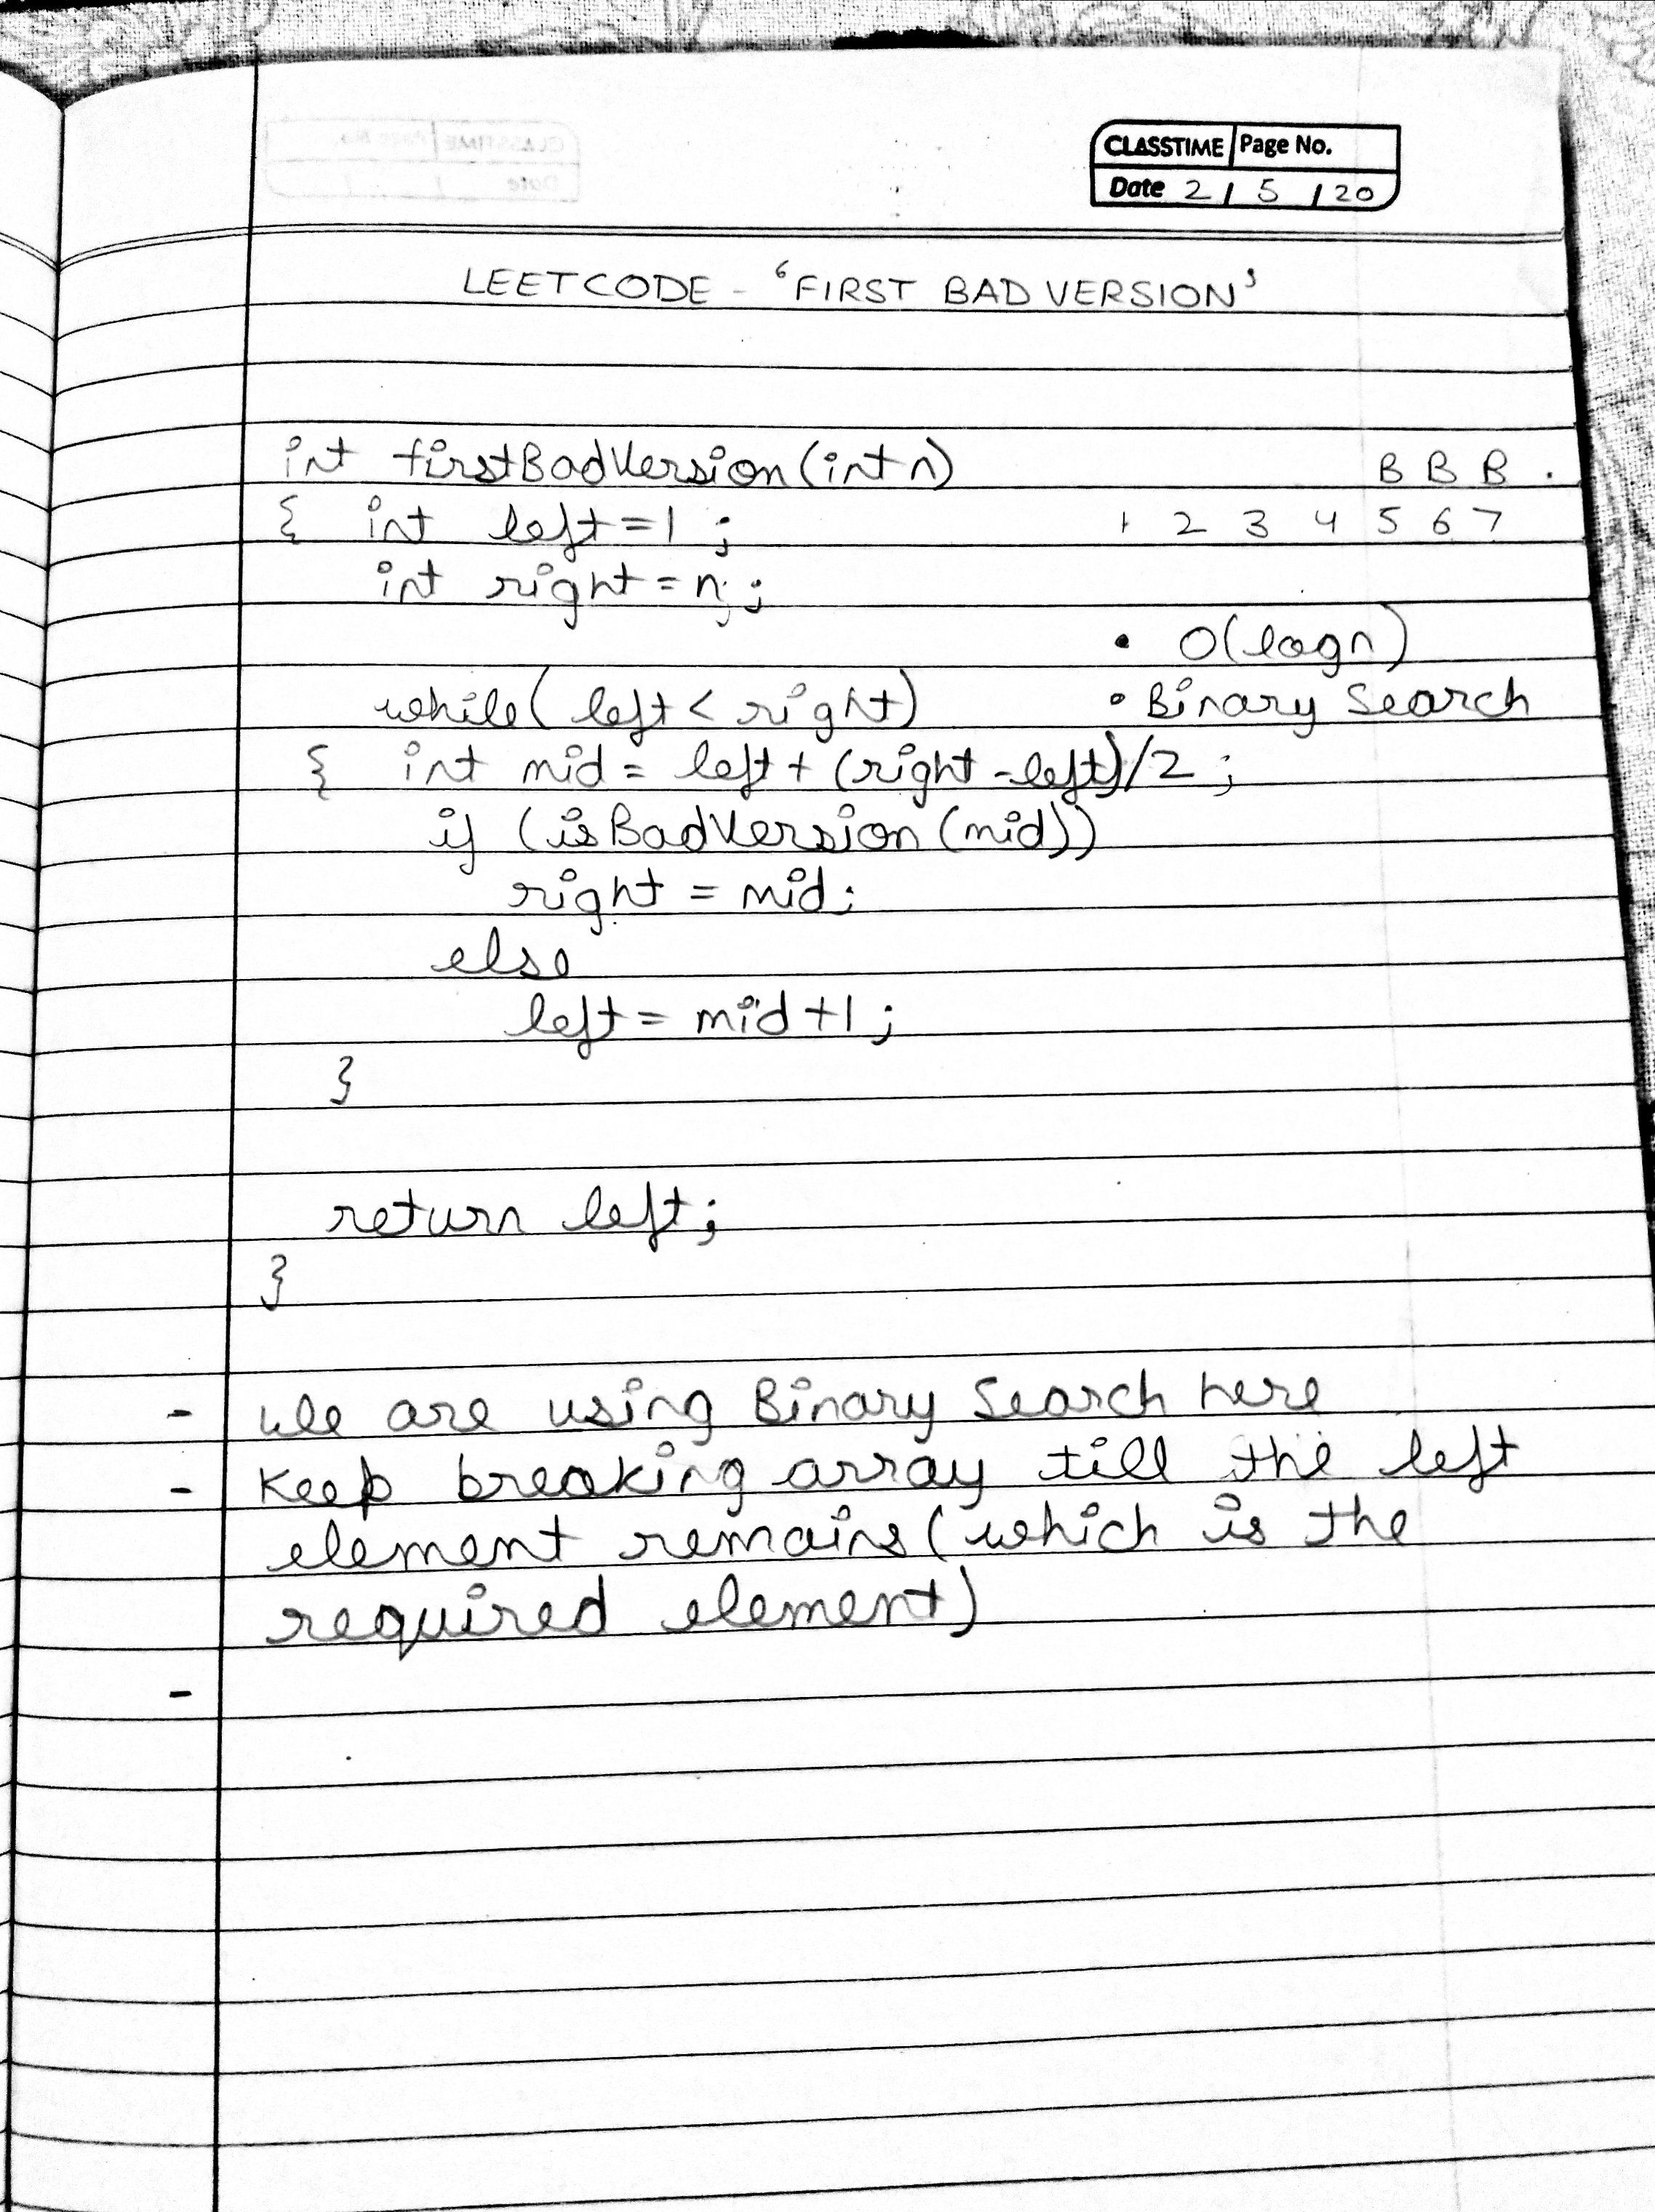 CLASSTIME Page No.
Date 2 / 5 / 20
LEETCODE - 'FIRST BAD VERSION'
int firstBadVersion(int n)
B B B .
{ int left = 1 ;
1 2 3 4 5 6 7
int right = n ;
• O(logn)
while( left < right)
• Binary Search
{ int mid = left + (right - left)/2 ;
if (isBadVersion (mid))
right = mid;
else
left = mid +1 ;
}
return left ;
}
- We are using Binary Search here
- Keep breaking array till the left
element remains ( which is the
required element)
-